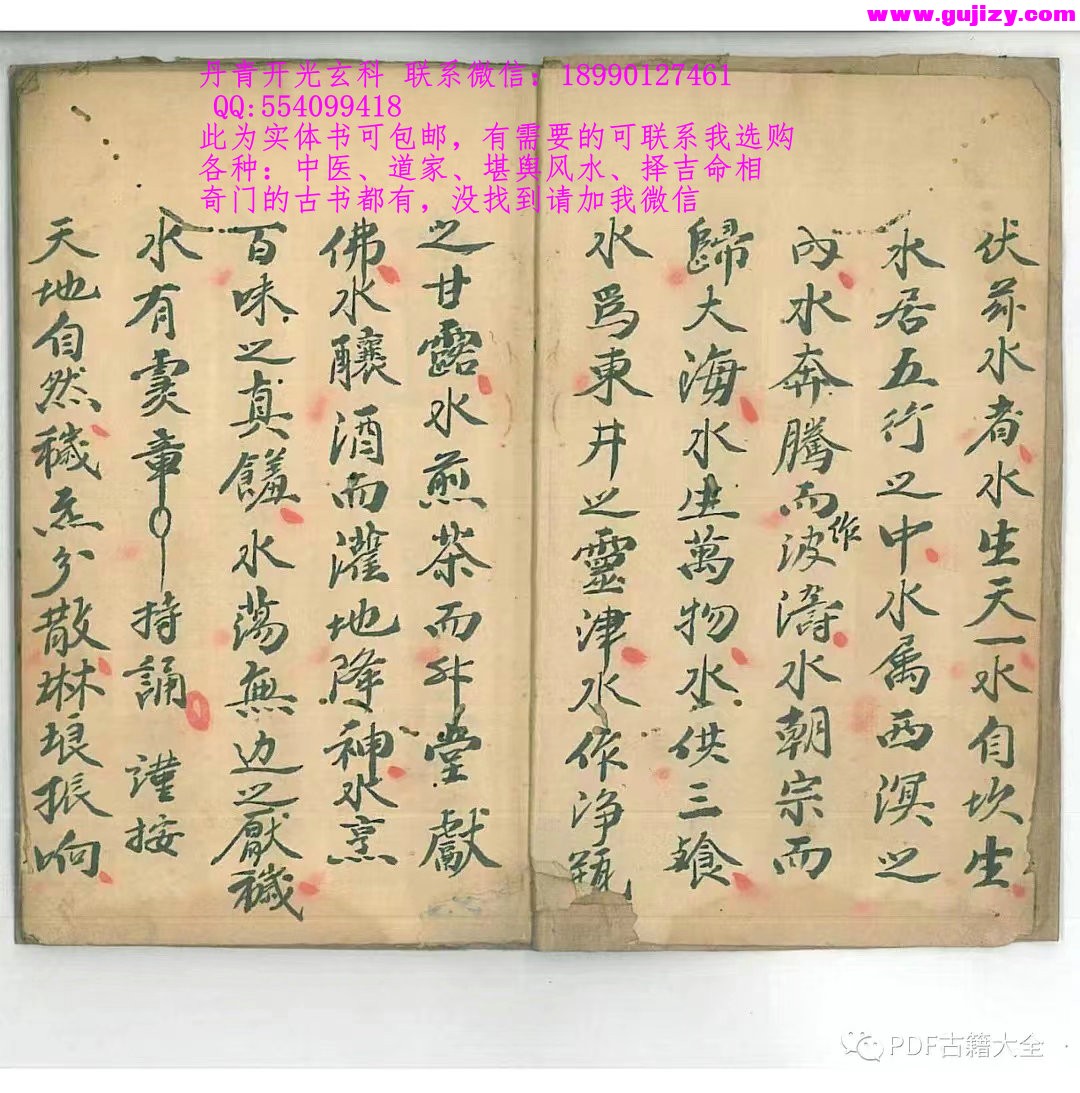 www.gujizy.com
丹青开光玄科 联系微信：18990127461
QQ:554099418
此为实体书可包邮，有需要的可联系我选购
各种：中医、道家、堪舆风水、择吉命相
奇门的古书都有，没找到请加我微信
伏茲水者水生天一水自坎生
水居五行之中水属西溟之
內水奔騰而作波濤水朝宗而
歸大海水生萬物水供三飡
水爲東井之靈津水作淨瓶
之甘露水煎茶而升堂獻
佛水釀酒而灌地降神水烹
百味之真饈水蕩無边之厭穢
水有霛章持誦 谨按
天地自然穢炁分散琳琅振响
PDF古籍大全